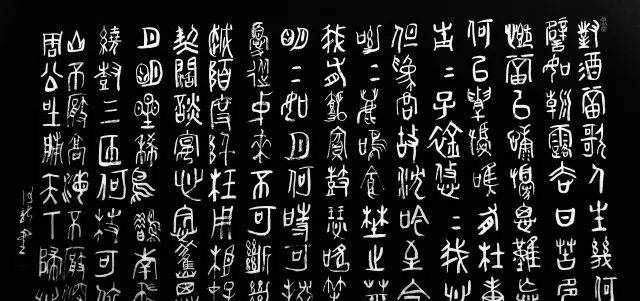 對酒當歌人生幾何
譬如朝露去日苦
慨當以慷憂思難忘
何以解憂唯有杜康
青〻子衿悠〻我心
但為君故沈吟至今
呦〻鹿鳴食埜之苹
我有嘉賓鼓瑟吹
明〻如月何時可掇
憂從中來不可斷絕
越陌度阡枉用相存
契闊談宴心念舊恩
月明星稀烏鵲南飛
繞樹三匝何枝可依
山不厭高海不厭深
周公吐哺天下歸心